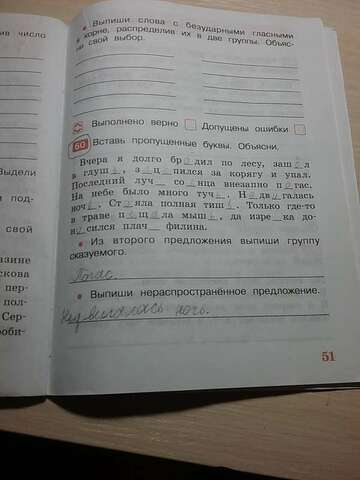 ив число
• Выпиши слова с безударными гласными
в корне, распределив их в две группы. Объяс-
ни свой выбор.
Выполнено верно Допущены ошибки
60 Вставь пропущенные буквы. Объясни.
Вчера я долго бр_дил по лесу, заш_л
в глуш_, з_ц_пился за корягу и упал.
Последний луч_ со_нца внезапно п_гас.
На небе было много туч_. Н_дв_галась
ноч_. Ст_яла полная тиш_. Только где-то
в траве п_щ_ла мыш_, да изре_ка до-
н_сился плач_ филина.
• Из второго предложения выпиши группу
сказуемого.
Погас.
• Выпиши нераспространённое предложение.
Надвигалась ночь.
51
Выдели
под-
свой
азине
скова
пер-
пол-
Сер-
роби-